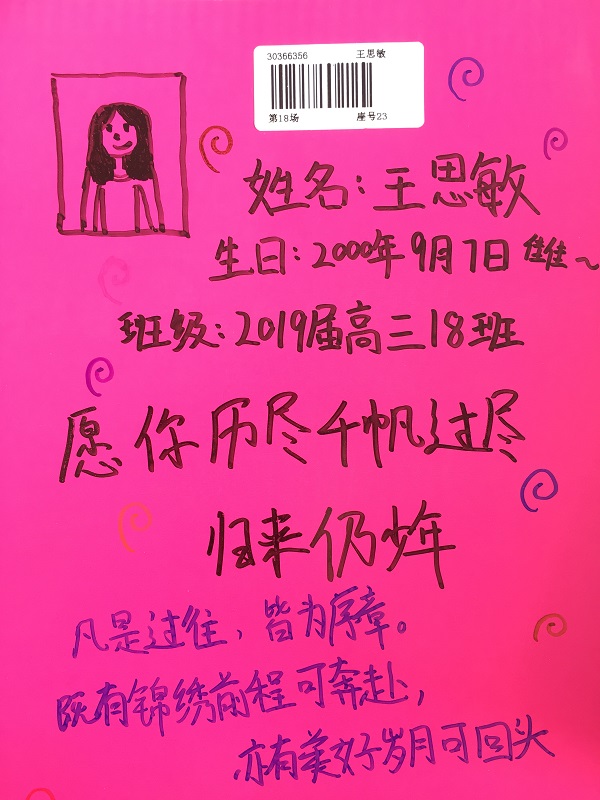 30366356 王思敏
第18场 座号23
姓名：王思敏
生日：2000年9月7日 雠~
班级：2019届高三18班
愿你历尽千帆过尽
归来仍少年
凡是过往，皆为序章。
既有锦绣前程可奔赴，
亦有美好岁月可回头